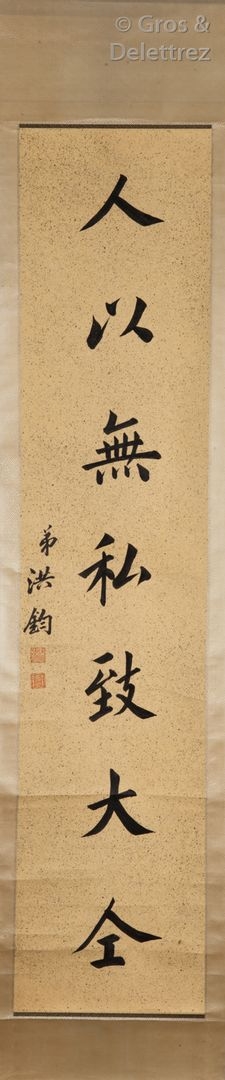 © Gros &
Delettrez
人以無私致大仝
弟洪鈞